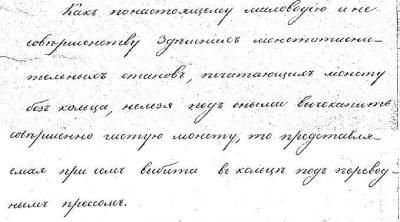 Какъ понастоящему маловодію и не
совѣршенству здѣшнихъ монетотисни-
тельныхъ становъ, печатающихъ монету
безъ кольца, нельзя подъ оными вычеканить
совѣршенно чистую монету, то представля-
емая при семъ выбита въ кольцѣ подъ перевод-
нымъ прессомъ.